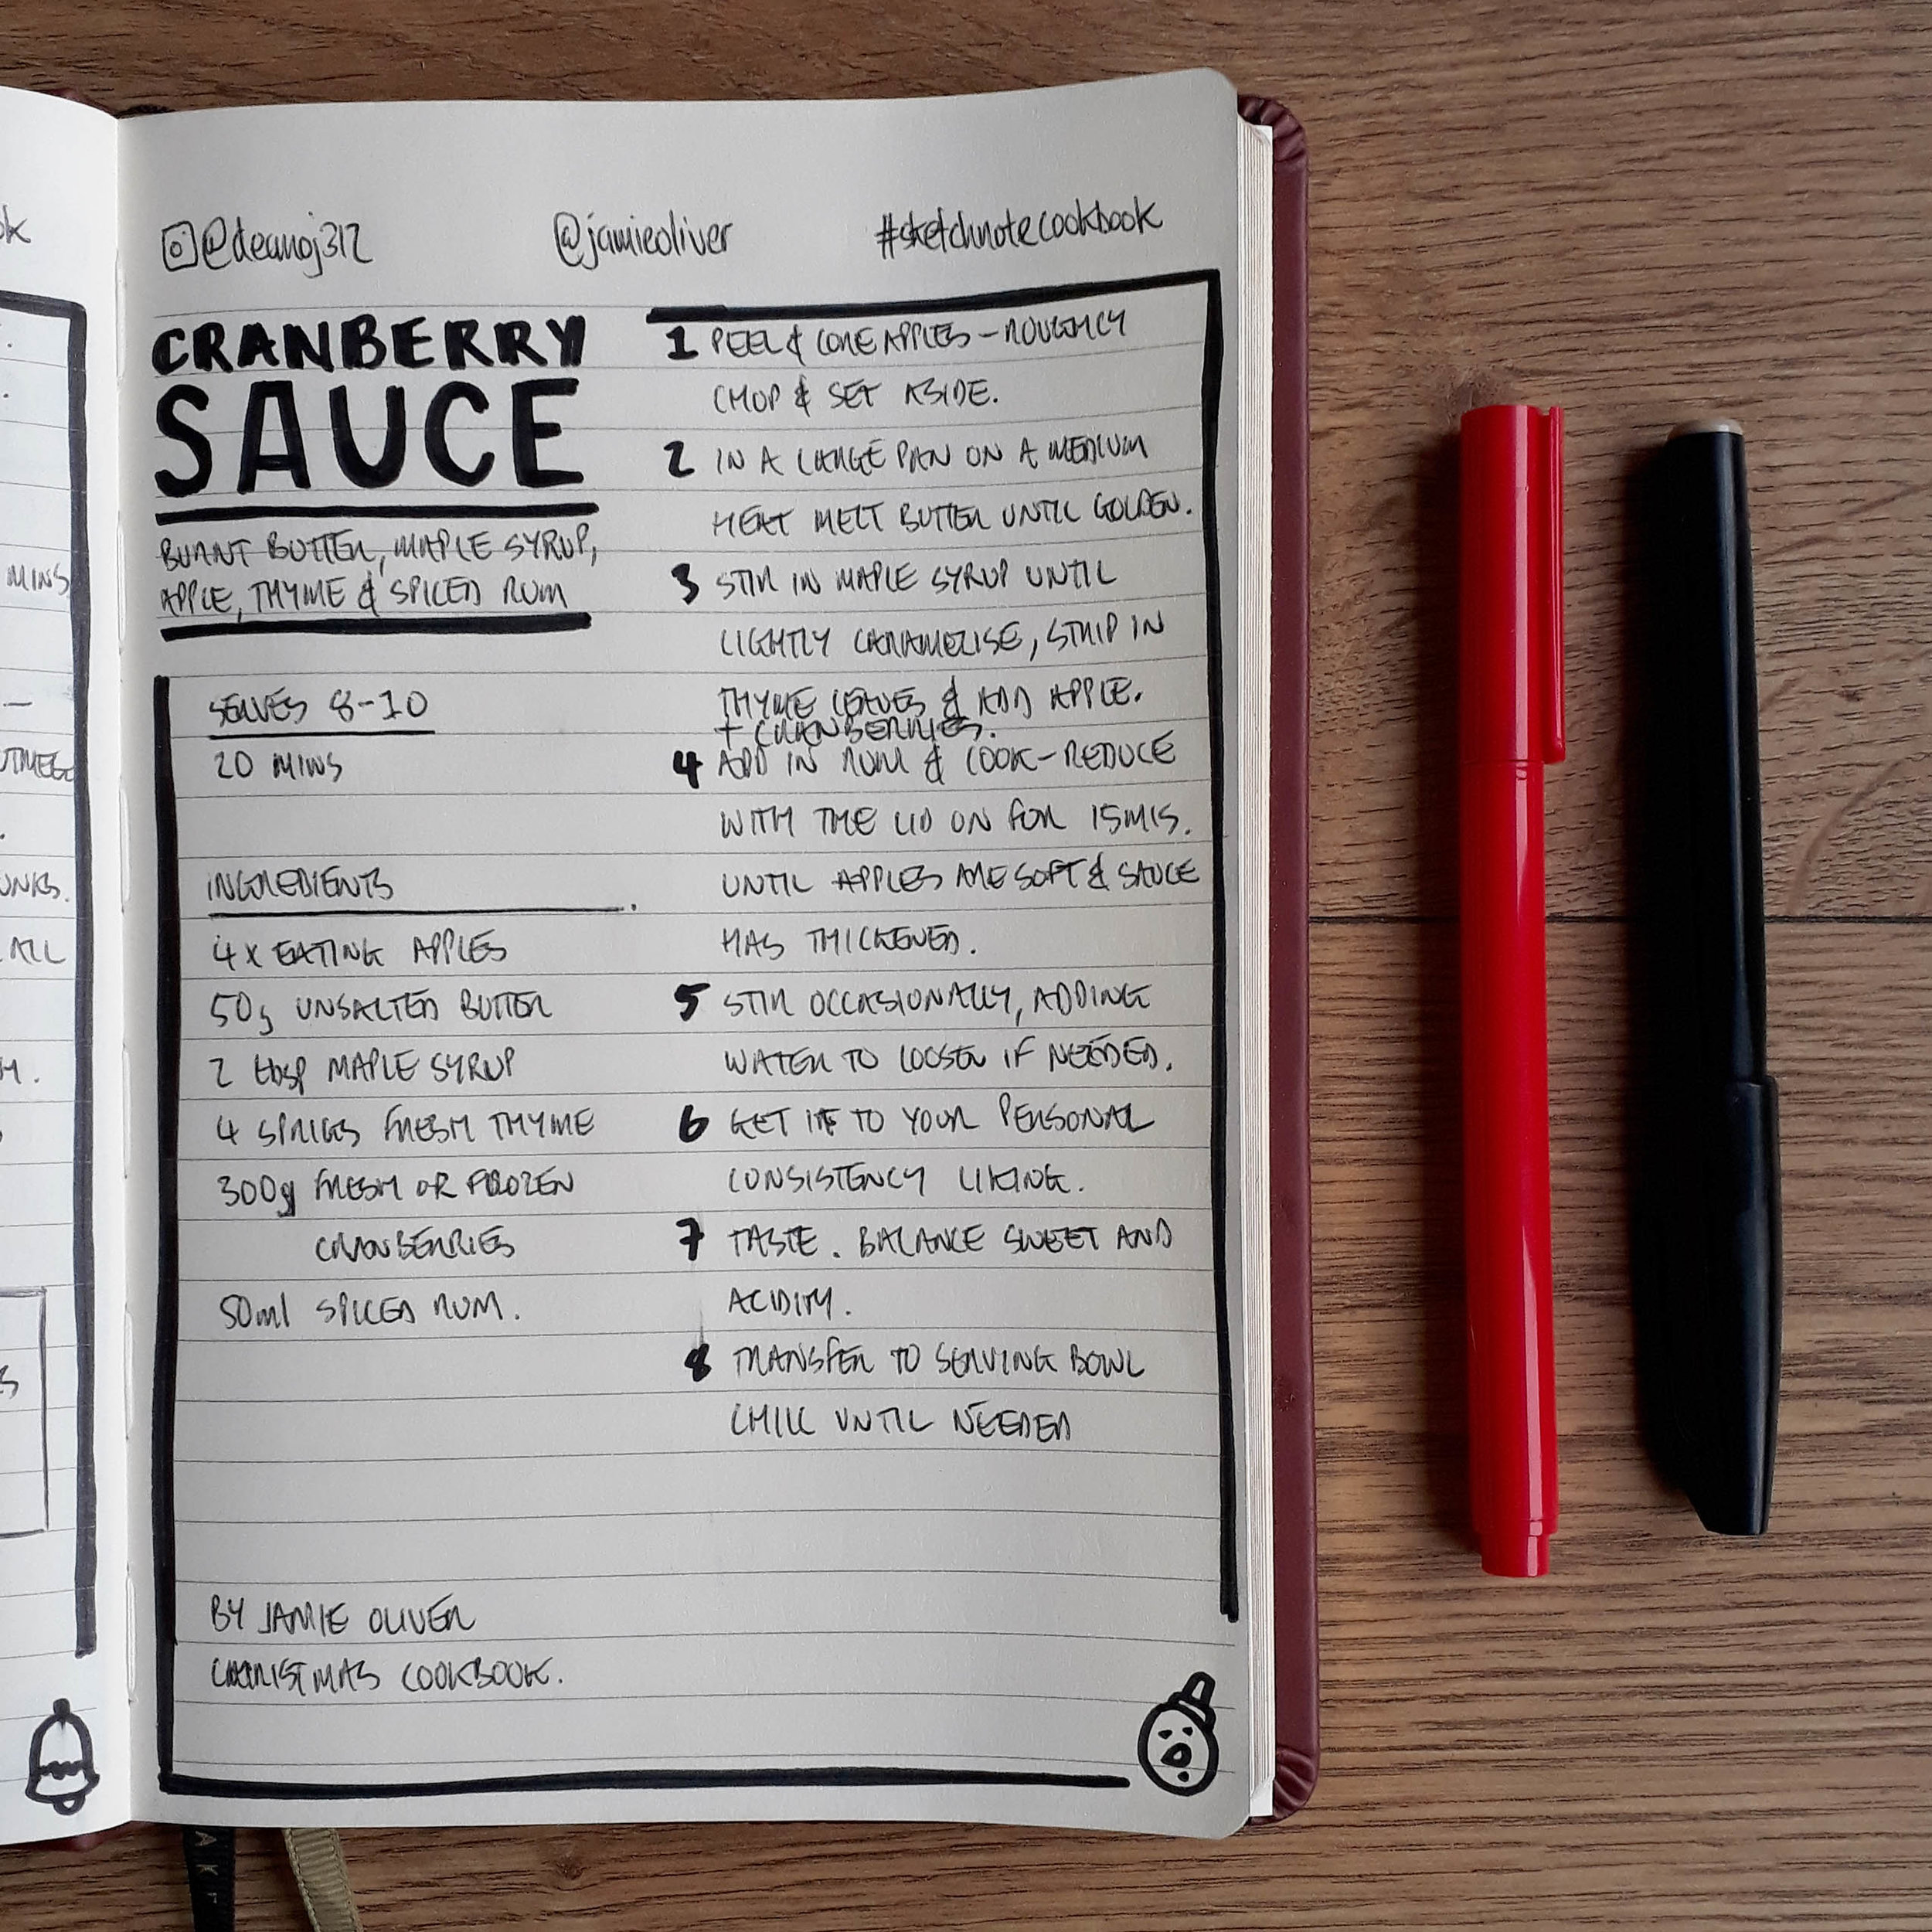 ok
MINS
UTMEG
UNKS.
ALL
@deanoj312 @jamieoliver #sketchnotecookbook
CRANBERRY
SAUCE
BURNT BUTTER, MAPLE SYRUP,
APPLE, THYME & SPICED RUM
SERVES 8-10
20 MINS
INGREDIENTS
4 x EATING APPLES
50g UNSALTED BUTTER
2 tbsp MAPLE SYRUP
4 SPRIGS FRESH THYME
300g FRESH OR FROZEN
CRANBERRIES
50ml SPICED RUM.
BY JAMIE OLIVER
CHRISTMAS COOKBOOK.
1 PEEL & CORE APPLES - ROUGHLY
CHOP & SET ASIDE.
2 IN A LARGE PAN ON A MEDIUM
HEAT MELT BUTTER UNTIL GOLDEN.
3 STIR IN MAPLE SYRUP UNTIL
LIGHTLY CARAMELISE, STRIP IN
THYME LEAVES & ADD APPLE.
+ CRANBERRIES.
4 ADD IN RUM & COOK - REDUCE
WITH THE LID ON FOR 15MIS.
UNTIL APPLES ARE SOFT & SAUCE
HAS THICKENED.
5 STIR OCCASIONALLY, ADDING
WATER TO LOOSEN IF NEEDED.
6 GET IT TO YOUR PERSONAL
CONSISTENCY LIKING.
7 TASTE. BALANCE SWEET AND
ACIDITY.
8 TRANSFER TO SERVING BOWL
CHILL UNTIL NEEDED